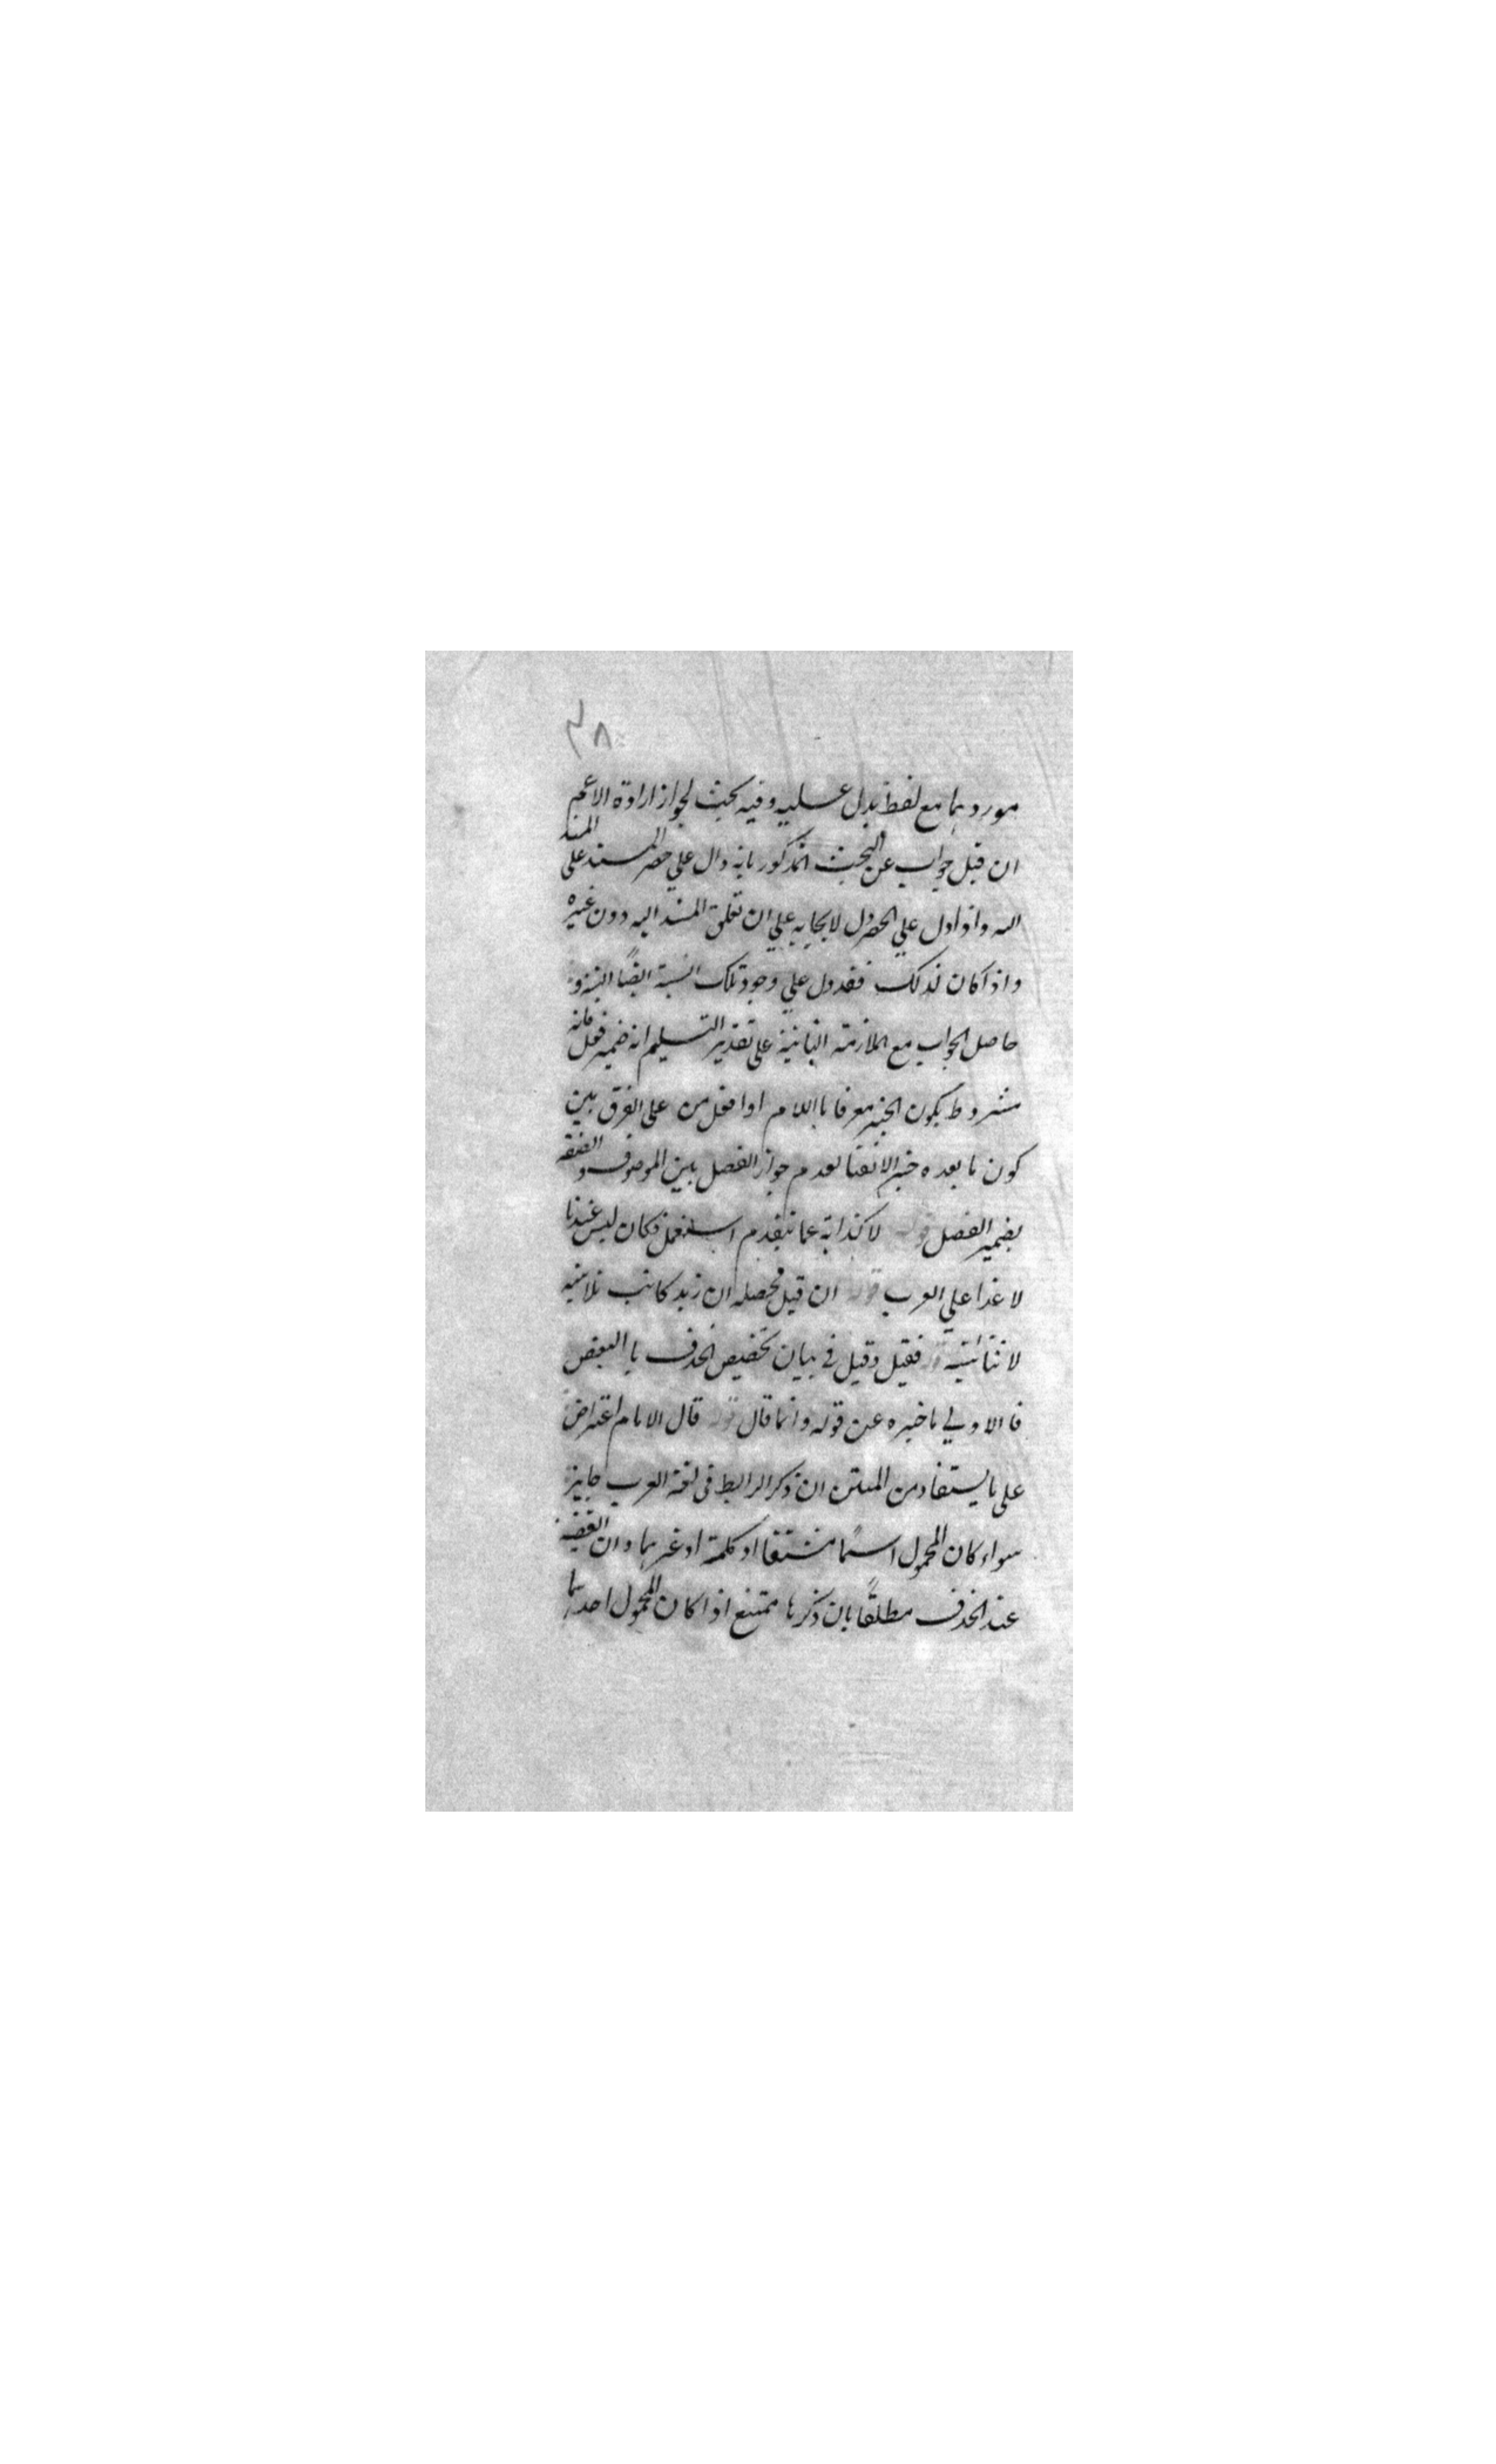 ٣٨
موردهما مع لفظ يدل عليه وفيه بحث لجواز ارادة الاعم
ان قيل جواب عن البحث المذكور بانه دال علي حصر المسند على المسند
اليه واذا دل علي الحصر دل لايجابه علي ان تعلق المسند اليه دون غيره
واذا كان كذلك فقد دل علي وجود تلك النسبة ايضًا
حاصل الجواب مع الملازمة الثانية على تقدير التسليم انه ضمير فصل فانه
مشروط بكون الخبر معرفا باللام او افعل من على الفرق بين
كون ما بعده خبرا لا نعتا لعدم جواز الفصل بين الموصوف والصفة
بضمير الفصل قوله لا كناية عما تقدم استعمل وكان ليس عندنا
لا غدا علي العرب قوله ان قيل محصله ان زيد كاتب ثلاثية
لا ثنائية قوله فقيل وقيل في بيان تخصيص الحذف با البعض
فا الاولي تاخيره عن قوله وانما قال قوله قال الامام اعتراض
على ما يستفاد من المتن ان ذكر الرابط فى لغة العرب جايز
سواء كان المحمول اسمًا مشتقا او كلمة او غيرهما وان القضية
عند الحذف مطلقًا بان ذكرها ممتنع اذا كان المحمول احدهما